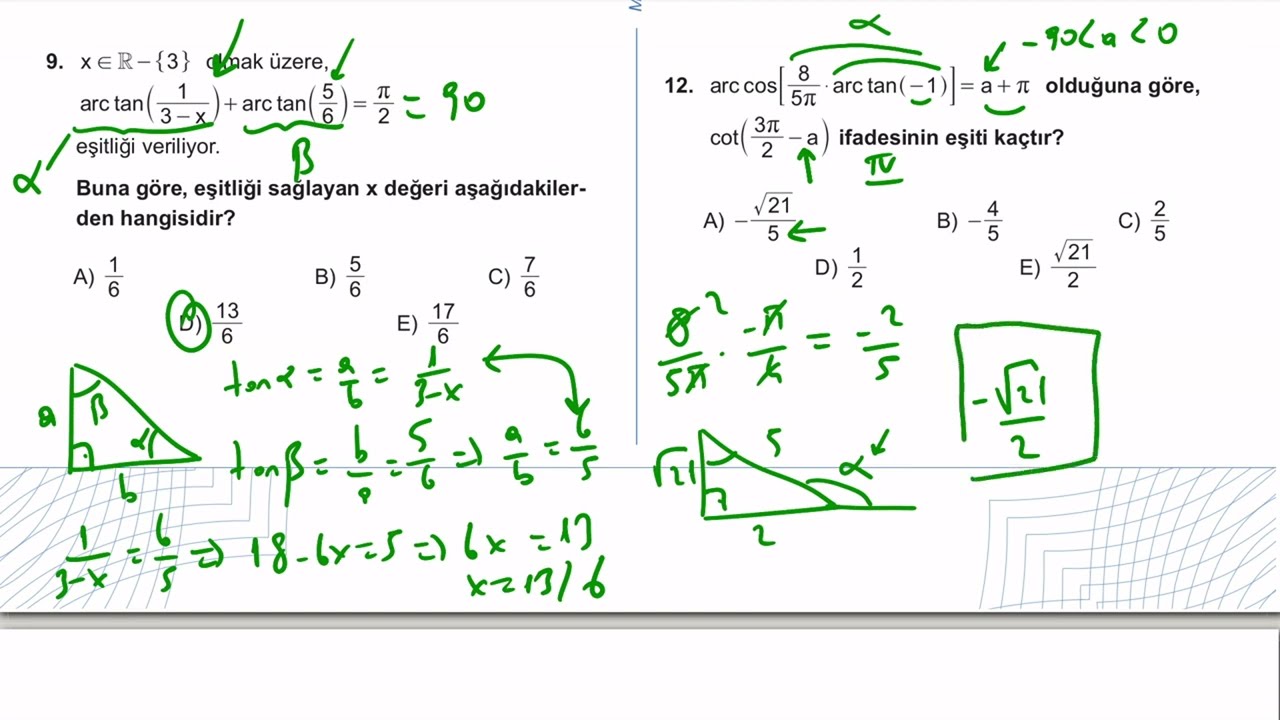 9. x ∈ ℝ – {3} olmak üzere,
arc tan(1/(3 – x)) + arc tan(5/6) = π/2 = 90
α β
eşitliği veriliyor.
Buna göre, eşitliği sağlayan x değeri aşağıdakiler-
den hangisidir?
A) 1/6 B) 5/6 C) 7/6
D) 13/6 E) 17/6
tan α = a/b = 1/(3-x)
a β α b
tan β = b/a = 5/6 ⇒ a/b = 6/5
1/(3-x) = 6/5 ⇒ 18 - 6x = 5 ⇒ 6x = 13
x = 13/6
α -90 < a < 0
12. arc cos[8/5π · arc tan(–1)] = a + π olduğuna göre,
cot(3π/2 – a) ifadesinin eşiti kaçtır?
IV
A) –√21/5 B) –4/5 C) 2/5
D) 1/2 E) √21/2
8/5π · -π/4 = -2/5
2
√21 5 α
2
-√21/2